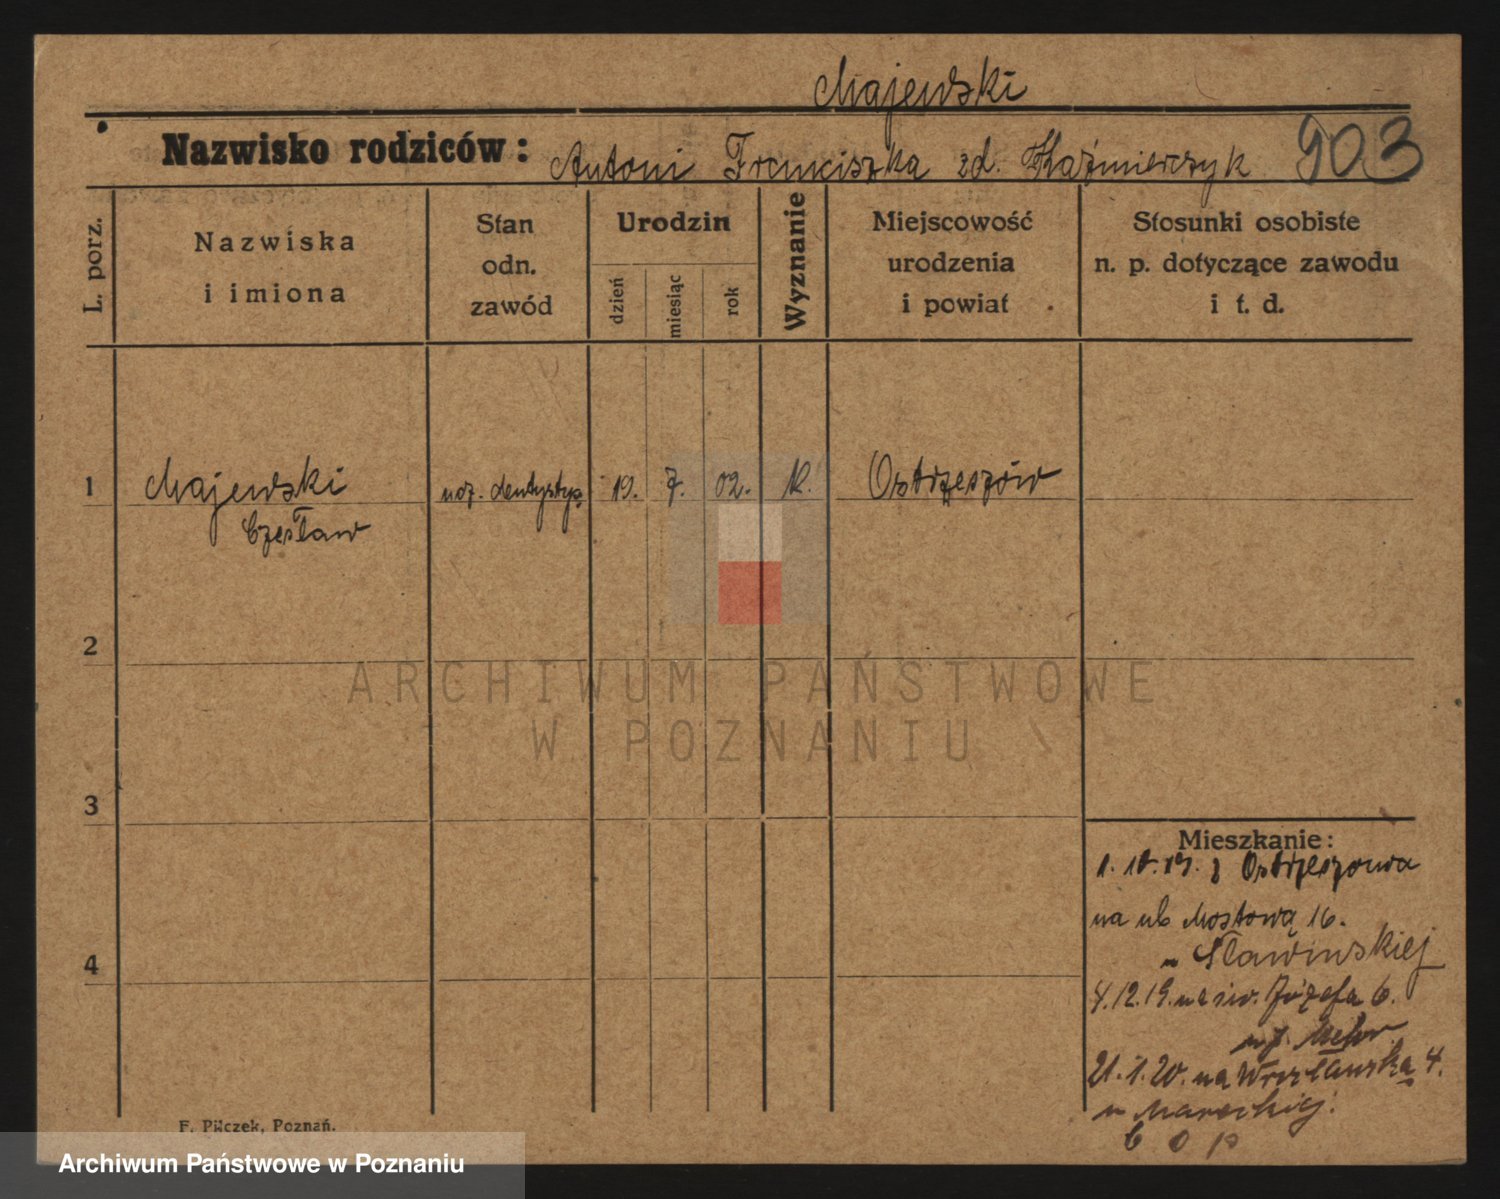 Majewski
Nazwisko rodziców: Antoni Franciszka zd. Kaźmierczyk 903
L. porz.
Nazwiska
i imiona
Stan
odn.
zawód
Urodzin
dzień
miesiąc
rok
Wyznanie
Miejscowość
urodzenia
i powiat
Stosunki osobiste
n. p. dotyczące zawodu
i t. d.
1 Majewski ucz. dentysty 19. 7. 02. K. Ostrzeszów
Czesław
2
ARCHIWUM PAŃSTWOWE
W POZNANIU
3
Mieszkanie:
1. 10. 19. z Ostrzeszowa
na ul. Mostową 16.
u Sławińskiej
4
4.12.19. na św. Józefa 6.
21.1.20. na Wrocławską 4.
u Mareckiej.
F. Pilczek, Poznań.
Archiwum Państwowe w Poznaniu